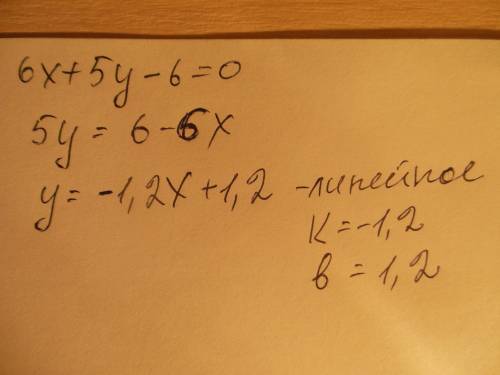 6x+5y-6=0
5y= 6-6x
y= -1,2x+1,2 -линейное
K=-1,2
в=1,2